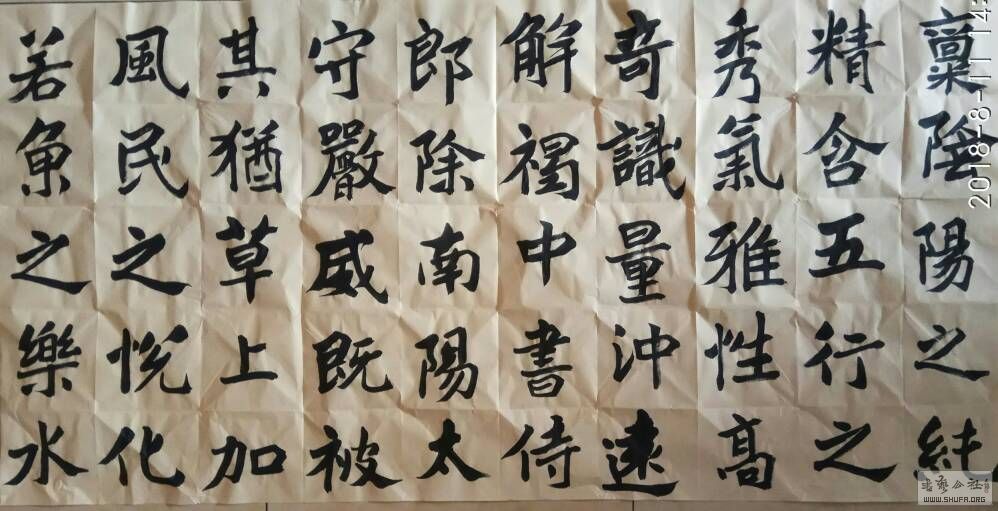 稟陰陽之純
精含五行之
秀氣雅性高
奇識量沖遠
解褐中書侍
郎除南陽太
守嚴威既被
其猶草上加
風民之悅化
若魚之樂水
2018-8-11 14:
WWW.SHUFA.ORG